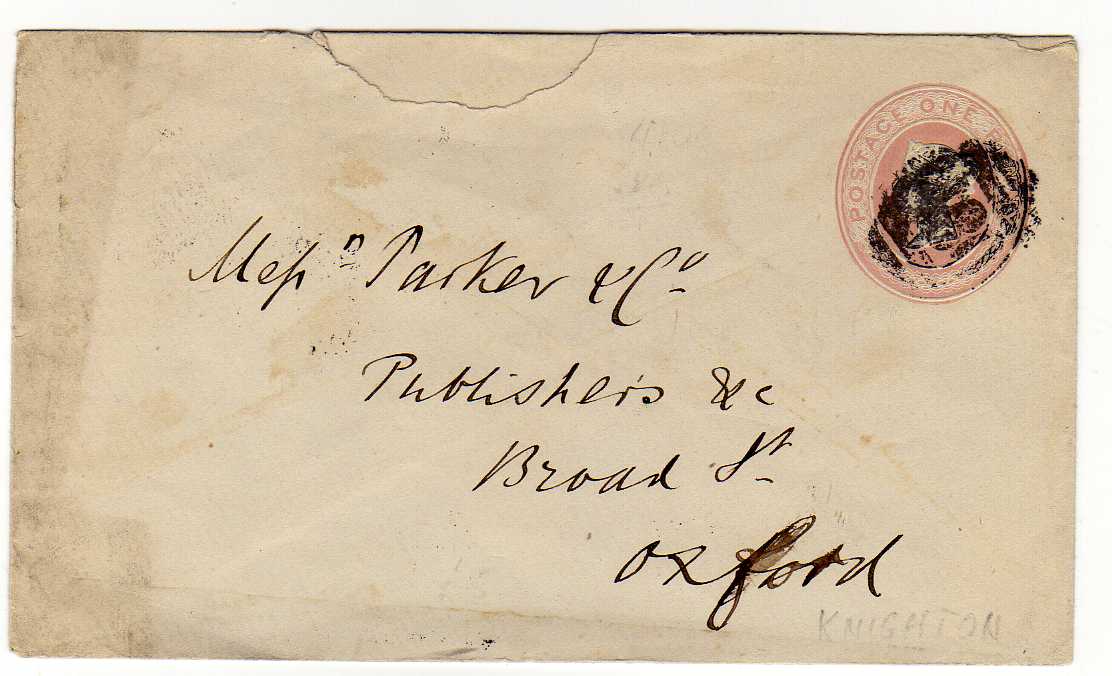 POSTAGE ONE
Messrs Parker & Co
Publishers &c
Broad St
Oxford
KNIGHTON